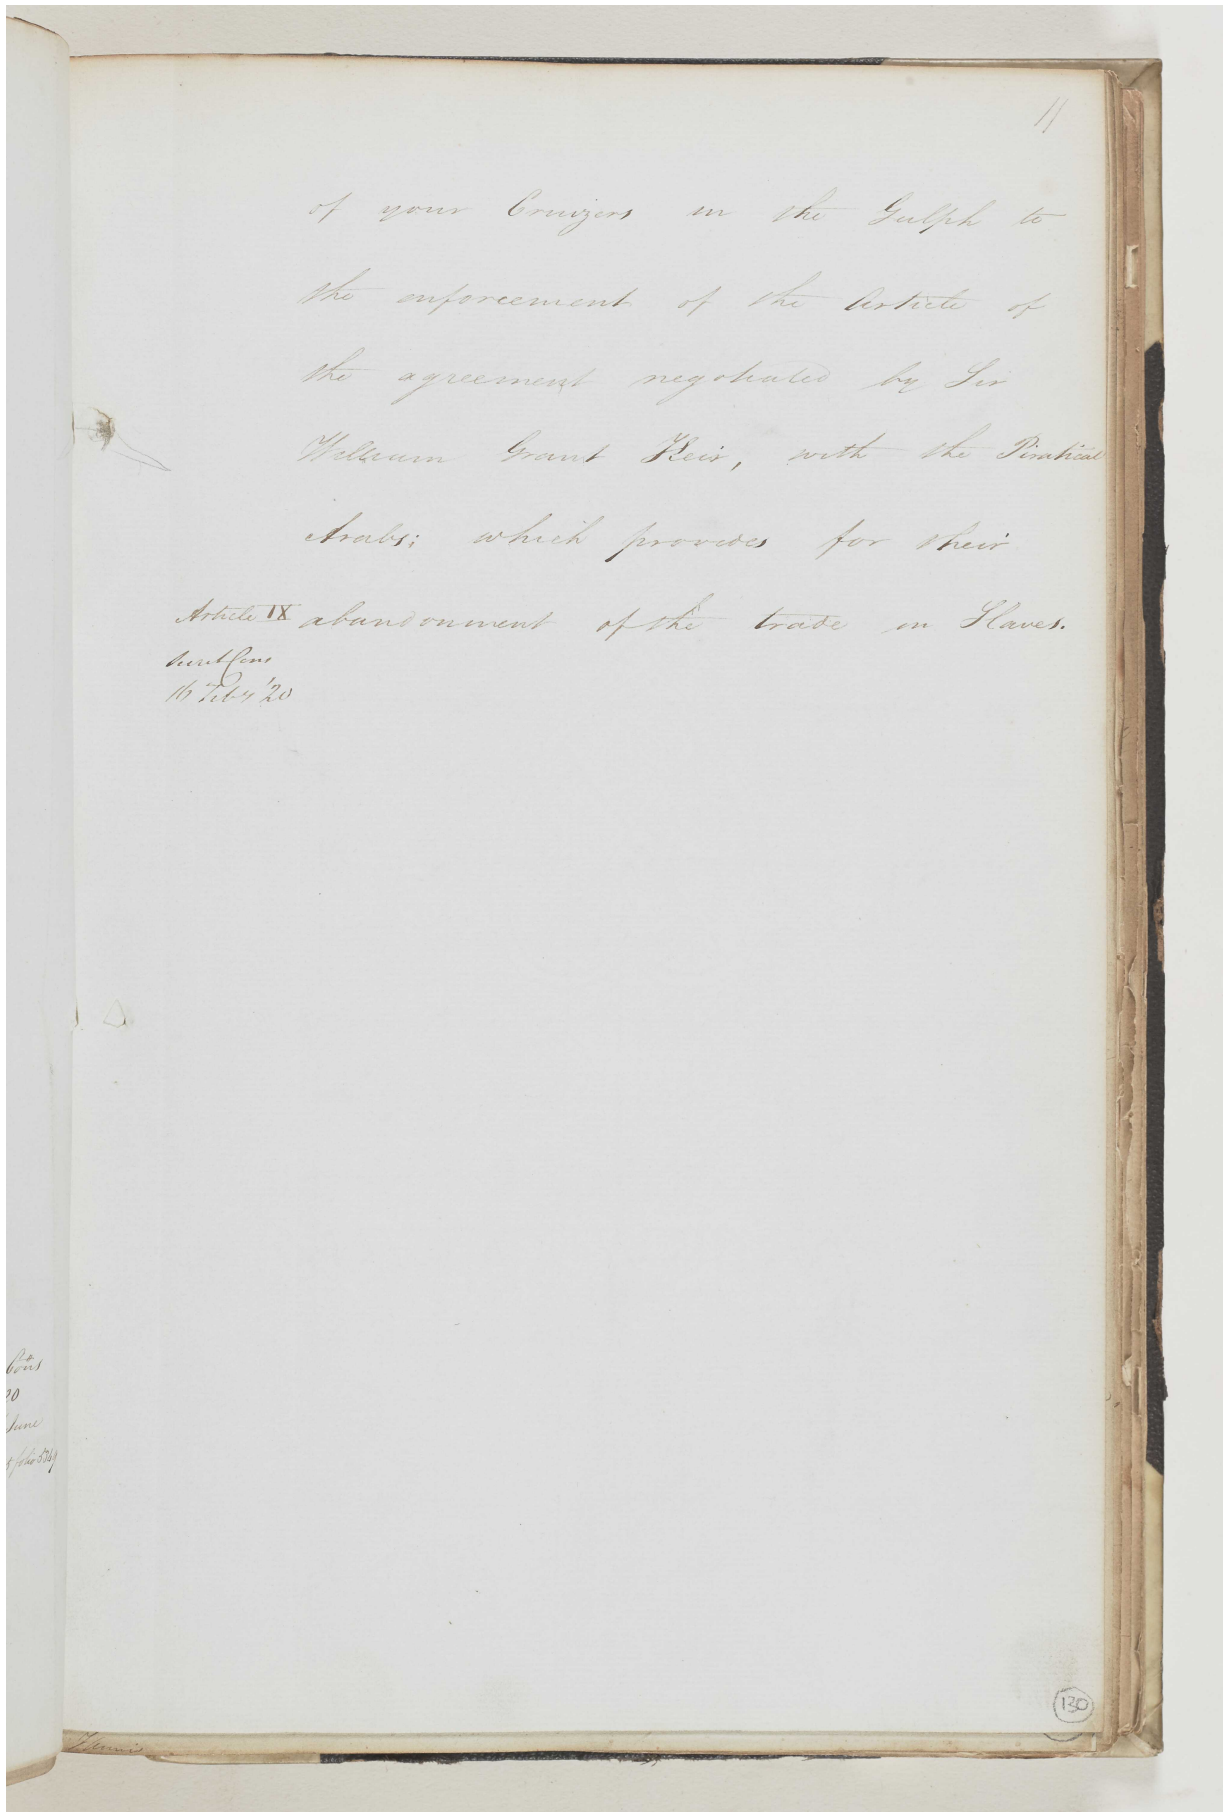 11
of your Cruizers in the Gulph to
the enforcement of the Article of
the agreement negotiated by Sir
William Grant Keir, with the Piratical
Arabs; which provides for their
Article IX abandonment of the trade in Slaves.
Secret Cons
16 Feby '20
Cons
20
June
folio
130